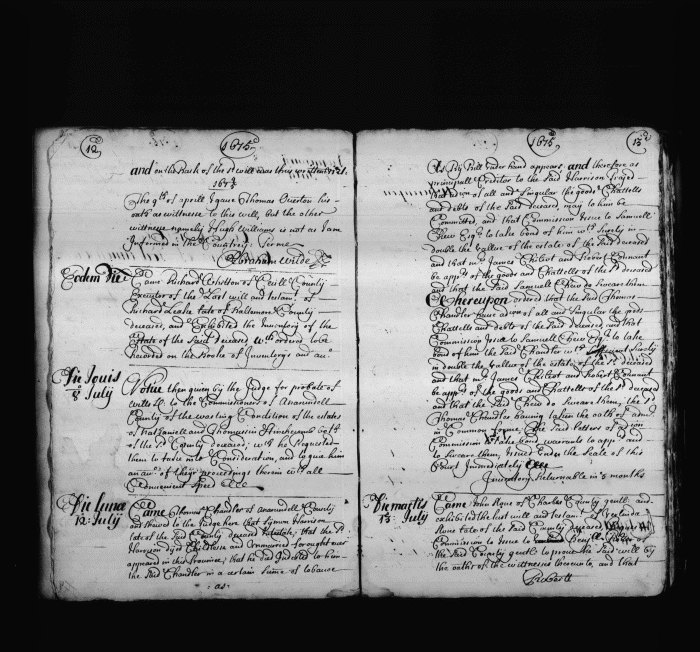 12
1675
and on the Back of the sd will was thus written vizt.
1674/5
The 9th of aprill I gave Thomas Overton his
oath as wittnesse to this will, but the other
wittnesse namely Hugh Williams is not as I am
Informed in the Countrey: Terme
Abraham Wilde
Eodem Die
Came Richard Whitton of Cecill County
Executor of the Last will and testamt of
Richard Leake late of Baltemore County
deceased, and Exhibited the Inventory of the
Estate of the said deceased wch ordered to be
Recorded on the Booke of Inventorys and
Die Jovis
8 July
Notice then given by the Judge for probate of
wills &c. to the Commissioners of Anarundell
County of the wasting Condition of the estates
of Nathaniell and
of the sd County deceased; wch he Requested
them to take into Consideration, and to give him
an accot. of theyr proceedings therein with all
Convenient speed
Die Lunæ
12 July
Came Thomas Chandler of Anarundell County
and shewed to the Judge here that Symon Harrison
late of the said County deceased Intestate, that the sd
Harrison dyed Childlesse and Unmarried for ought ever
appeared in this Province; that he died Indebted to him
the said Chandler in a certain sume of tobacco
as
1675
13
As By Bill under hand appears, and therefore as
principall Creditor to the said Harrison prayed
that admon of all and singular the goods Chattells
and debts of the said deceased, may to him be
Committed, and that Commission Issue to Samuell
Chew Esqr to take bond of him wth Surety in
double the vallue of the estate of the sd deceased
and that mr James Chilcot and Robert Connant
be appd of the goods and Chattells of the sd deceased
and that the said Samuell Chew do sweare them
Whereupon ordered that the said Thomas
Chandler have admon of all and singular the goods
Chattells and debts of the said deceased, and that
Commission Issue to Samuell Chew Esqr to take
bond of him the said Chandler wth sufficient Surety
in double the vallue of the estate of the sd deceased
and that mr James Chilcot and Robert Connant
be appd of the goods and Chattells of the sd deceased
and that the said Chew do sweare them; the sd
Thomas Chandler having taken the oath of admr
in Common forme, the said Letters of admon
Commission to take bond, warrant to appd and
to sweare them, Issued Under the Seale of this
Court Immediately
Inventory Returnable in 3 months
Die Martis
13 July
Came John of Charles County gentl: and
exhibited the last will and testamt of
late of the said County deceased
Commission to Issue to
the said County gentl to prove the said will by
the oaths of the wittnesses thereunto, and that
Probate